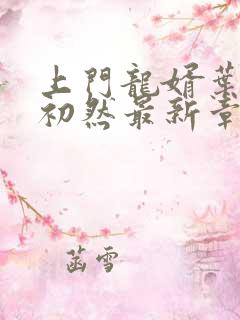 上門龍婿葉
初然最新章
菡雪